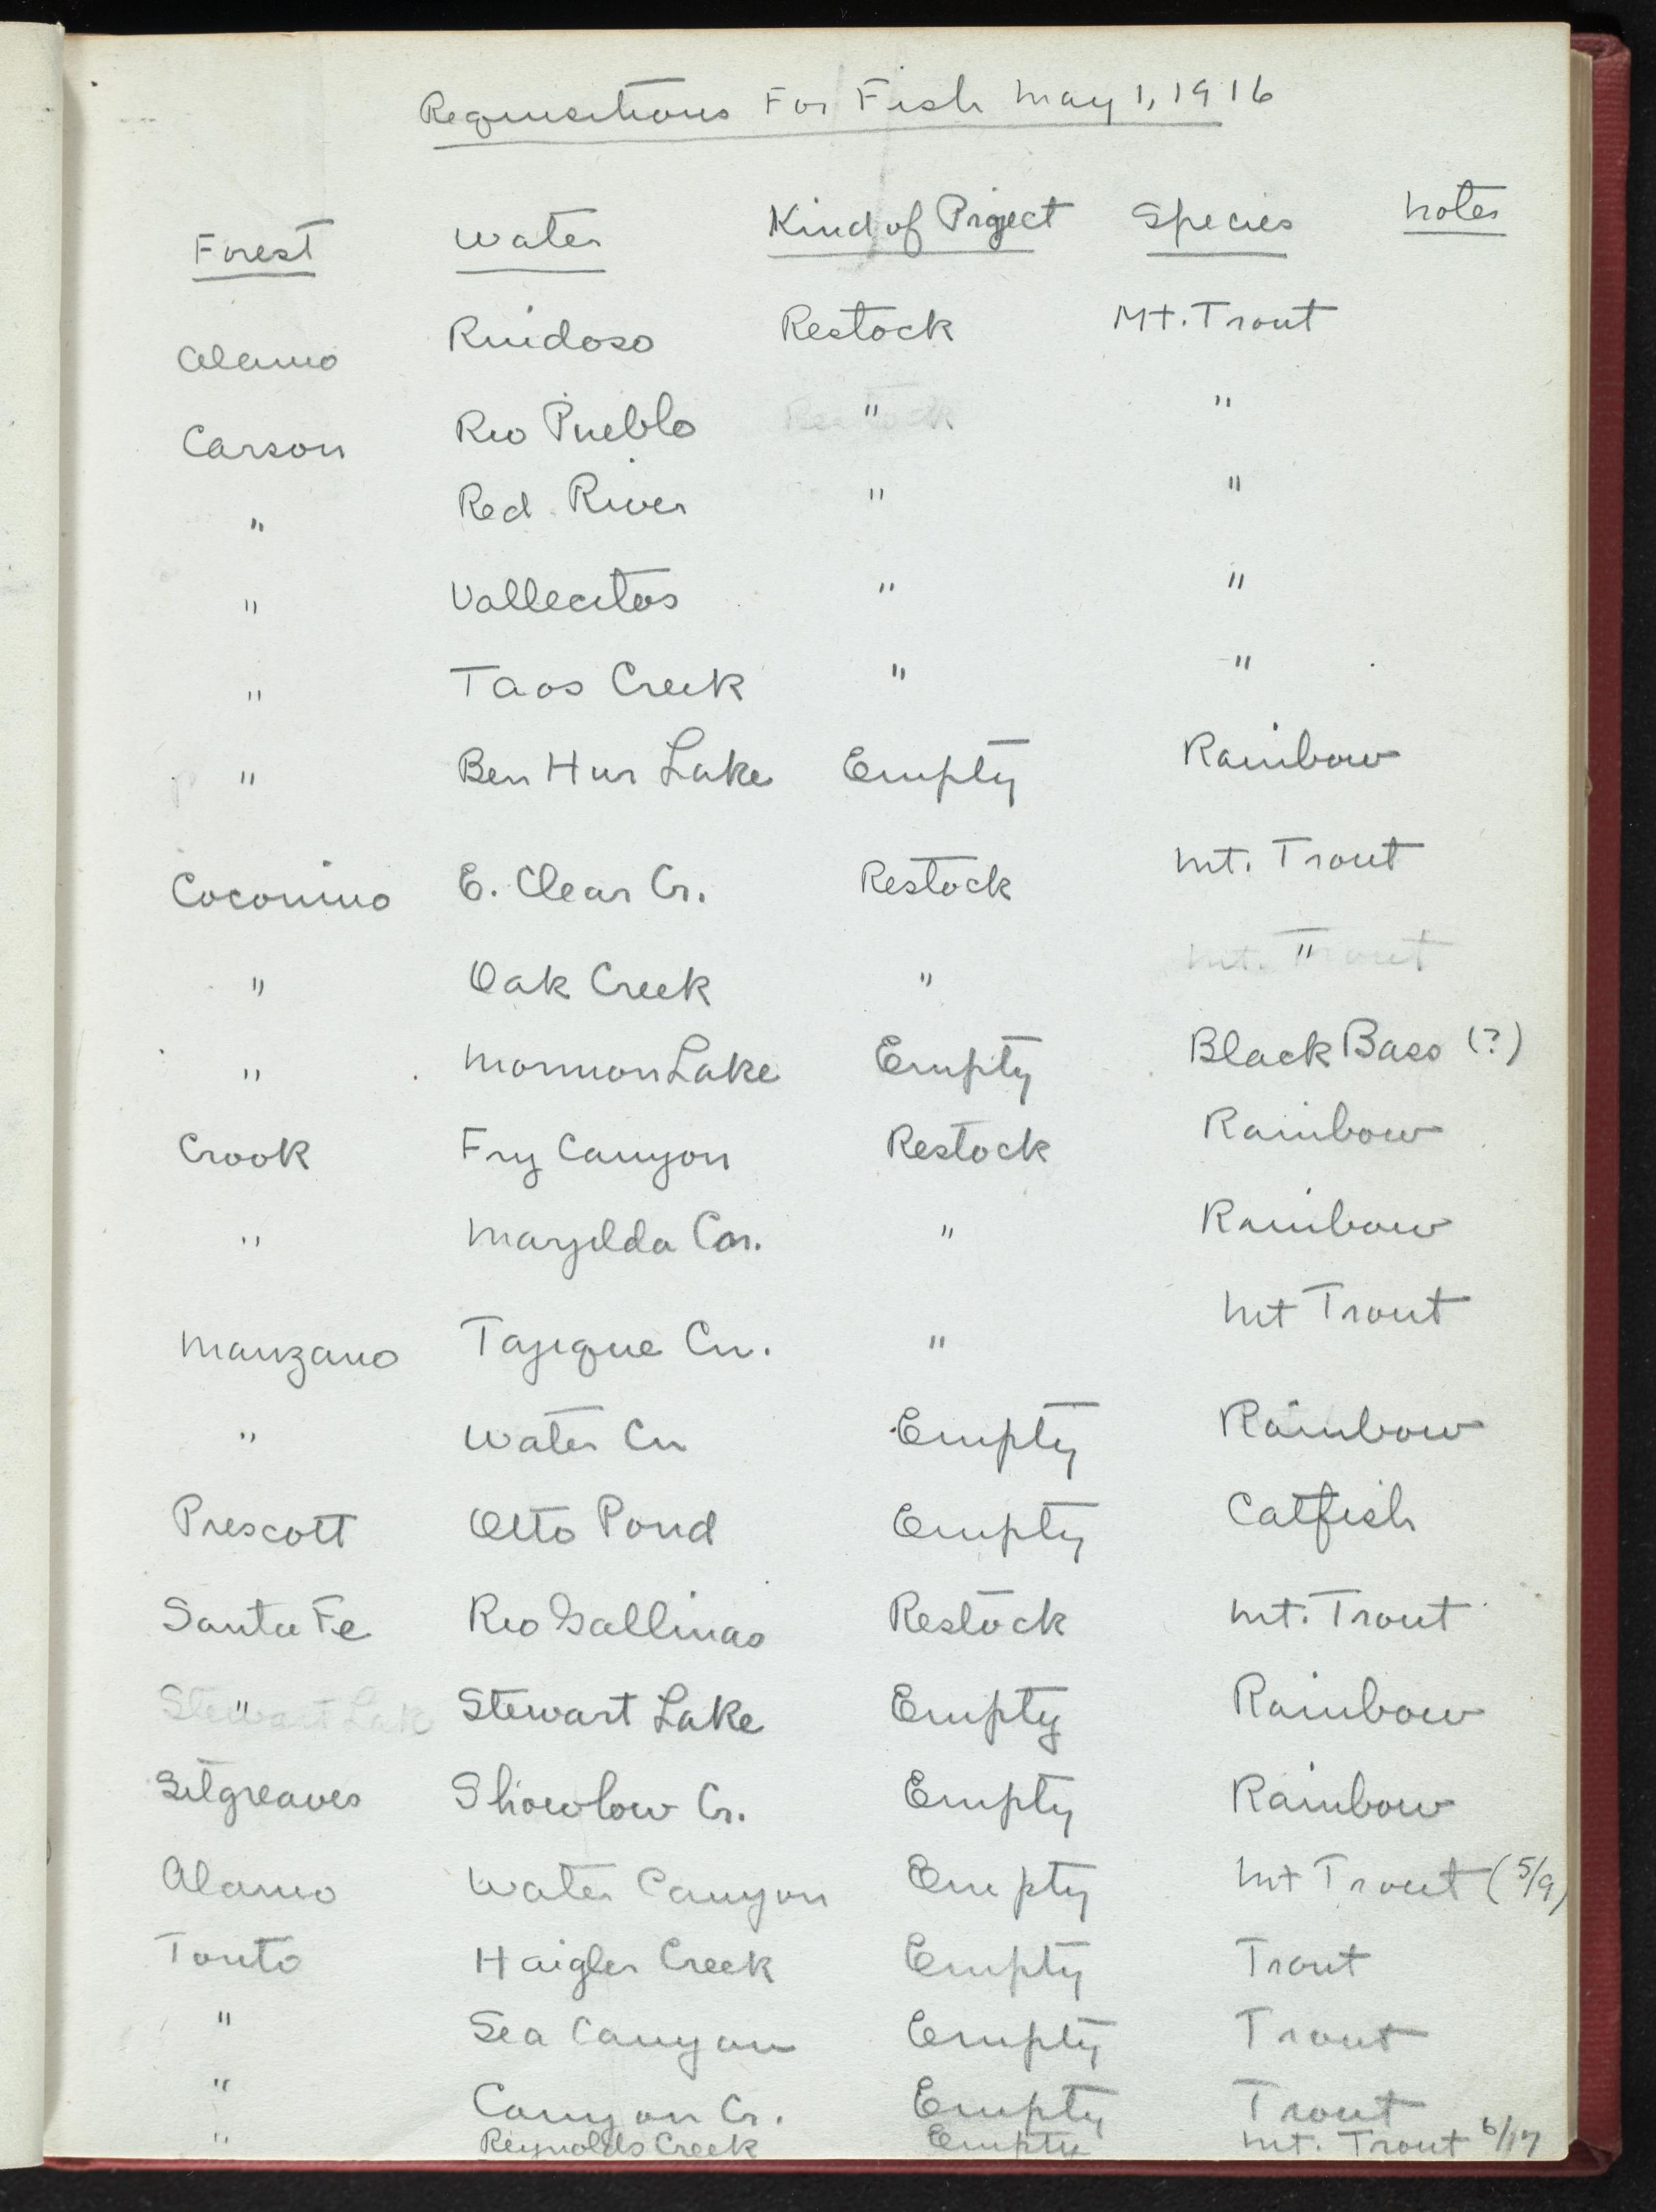 Requisitions For Fish May 1, 1916
Forest Water Kind of Project Species Notes
Alamo Ruidoso Restock Mt. Trout
Carson Rio Pueblo " "
" Red River " "
" Vallecitos " "
" Taos Creek " "
" Ben Hur Lake Empty Rainbow
Coconino E. Clear Cr. Restock Mt. Trout
" Oak Creek " "
" Mormon Lake Empty Black Bass (?)
Crook Fry Canyon Restock Rainbow
" Marijilda Can. " Rainbow
Manzano Tajique Cn. " Mt Trout
" Water Cn Empty Rainbow
Prescott Otto Pond Empty Catfish
Santa Fe Rio Gallinas Restock Mt. Trout
" Stewart Lake Empty Rainbow
Sitgreaves Showlow Cr. Empty Rainbow
Alamo Water Canyon Empty Mt Trout (5/9)
Tonto Haigler Creek Empty Trout
" Sea Canyon Empty Trout
" Canyon Cr. Empty Trout
" Reynolds Creek Empty Mt. Trout 6/17